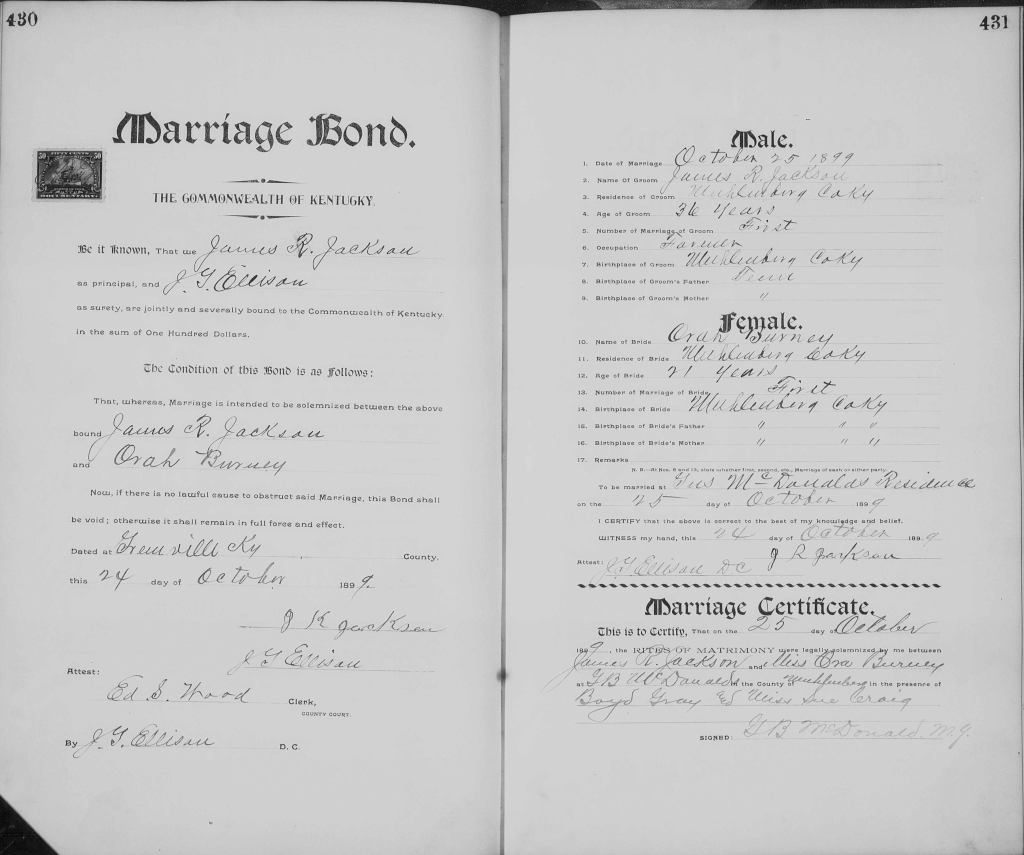 430
Marriage Bond.
FIFTY CENTS
50 50
DOCUMENTARY
THE COMMONWEALTH OF KENTUCKY.
Be it Known, That we James R. Jackson
as principal, and J. G. Ellison
as surety, are jointly and severally bound to the Commonwealth of Kentucky
in the sum of One Hundred Dollars.
The Condition of this Bond is as Follows:
That, whereas, Marriage is intended to be solemnized between the above
bound James R. Jackson
and Orah Burney
Now, if there is no lawful cause to obstruct said Marriage, this Bond shall
be void; otherwise it shall remain in full force and effect.
Dated at Greenville Ky County.
this 24 day of October 1899.
J R Jackson
J G Ellison
Attest:
Ed S. Wood Clerk,
COUNTY COURT.
By J. G. Ellison D. C.
431
Male.
1. Date of Marriage October 25 1899
2. Name Of Groom James R. Jackson
3. Residence of Groom Muhlenberg Co Ky
4. Age of Groom 36 years
5. Number of Marriage of Groom First
6. Occupation Farmer
7. Birthplace of Groom Muhlenberg Co Ky
8. Birthplace of Groom's Father Tenn
9. Birthplace of Groom's Mother "
Female.
10. Name of Bride Orah Burney
11. Residence of Bride Muhlenberg Co Ky
12. Age of Bride 21 years
13. Number of Marriage of Bride First
14. Birthplace of Bride Muhlenberg Co Ky
15. Birthplace of Bride's Father " " "
16. Birthplace of Bride's Mother " " "
17. Remarks
N. B.—At Nos. 5 and 13, state whether first, second, etc., Marriage of each or either party.
To be married at McDonalds Residence
on the 25 day of October 1899
I CERTIFY that the above is correct to the best of my knowledge and belief.
WITNESS my hand, this 24 day of October 1899.
J R Jackson
Attest: J. G. Ellison D C
Marriage Certificate.
This is to Certify, That on the 25 day of October
1899, the RITES OF MATRIMONY were legally solemnized by me between
James R. Jackson and Miss Ora Burney
at G B McDonalds in the County of Muhlenberg in the presence of
Boyd Gray & Miss Sue Craig
SIGNED: G B McDonald. M. J.